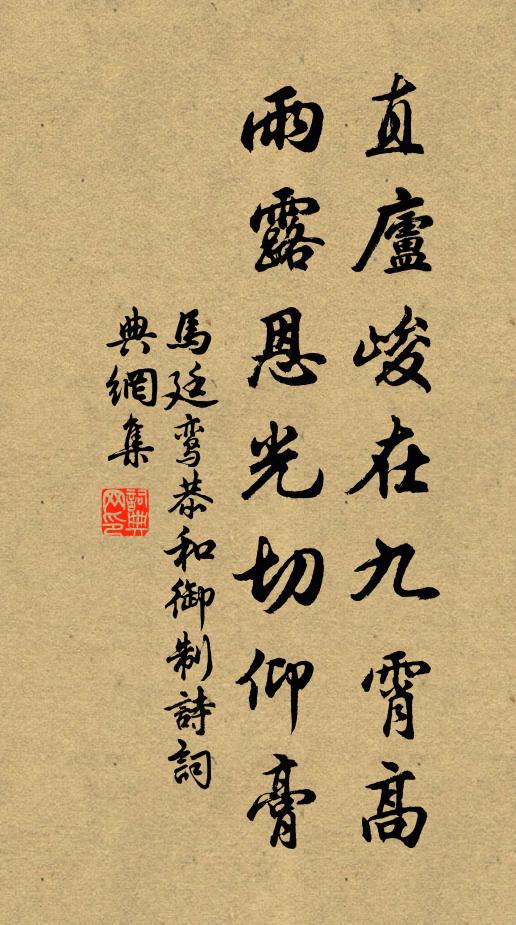 直廬峻在九霄高
雨露恩光切仰膏
馬廷鸞恭和御制詩詞
典網集
詞典網印